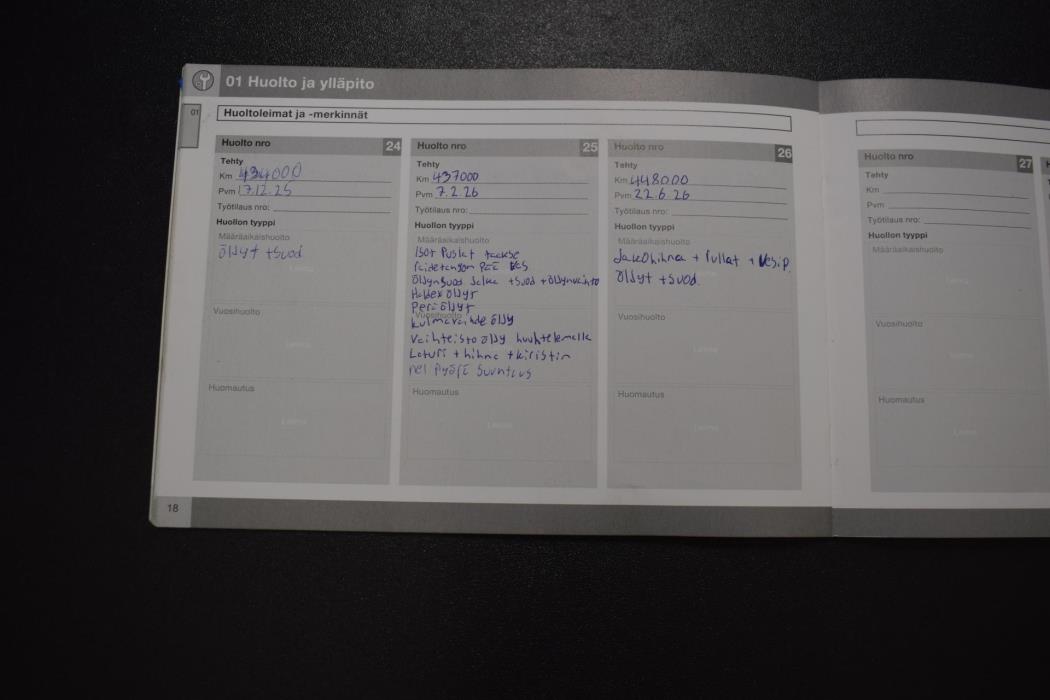 01 Huolto ja ylläpito
01
Huoltoleimat ja -merkinnät
Huolto nro 24
Tehty
Km 434000
Pvm 17.12.25
Työtilaus nro:
Huollon tyyppi
Määräaikaishuolto
Öljyt + suod
Leima
Vuosihuolto
Leima
Huomautus
Leima
Huolto nro 25
Tehty
Km 437000
Pvm 7.2.26
Työtilaus nro:
Huollon tyyppi
Määräaikaishuolto
Isot Puslat taakse
Raidetangon Pää
Öljynsuod Jalka + suod + öljynvaihto
Haldex öljyt
Perä öljyt
Vuosihuolto
Kulmavaihde öljy
Vaihteisto öljy huuhtelemalla
Laturi + hihna + kiristin
nel Pyörä Suuntaus
Huomautus
Leima
Huolto nro 26
Tehty
Km 448000
Pvm 22.6.26
Työtilaus nro:
Huollon tyyppi
Määräaikaishuolto
Jakohihna + rullat + Vesip.
Öljyt + suod.
Vuosihuolto
Leima
Huomautus
Leima
Huolto nro 27
Tehty
Km
Pvm
Työtilaus nro:
Huollon tyyppi
Määräaikaishuolto
Leima
Vuosihuolto
Leima
Huomautus
Leima
18